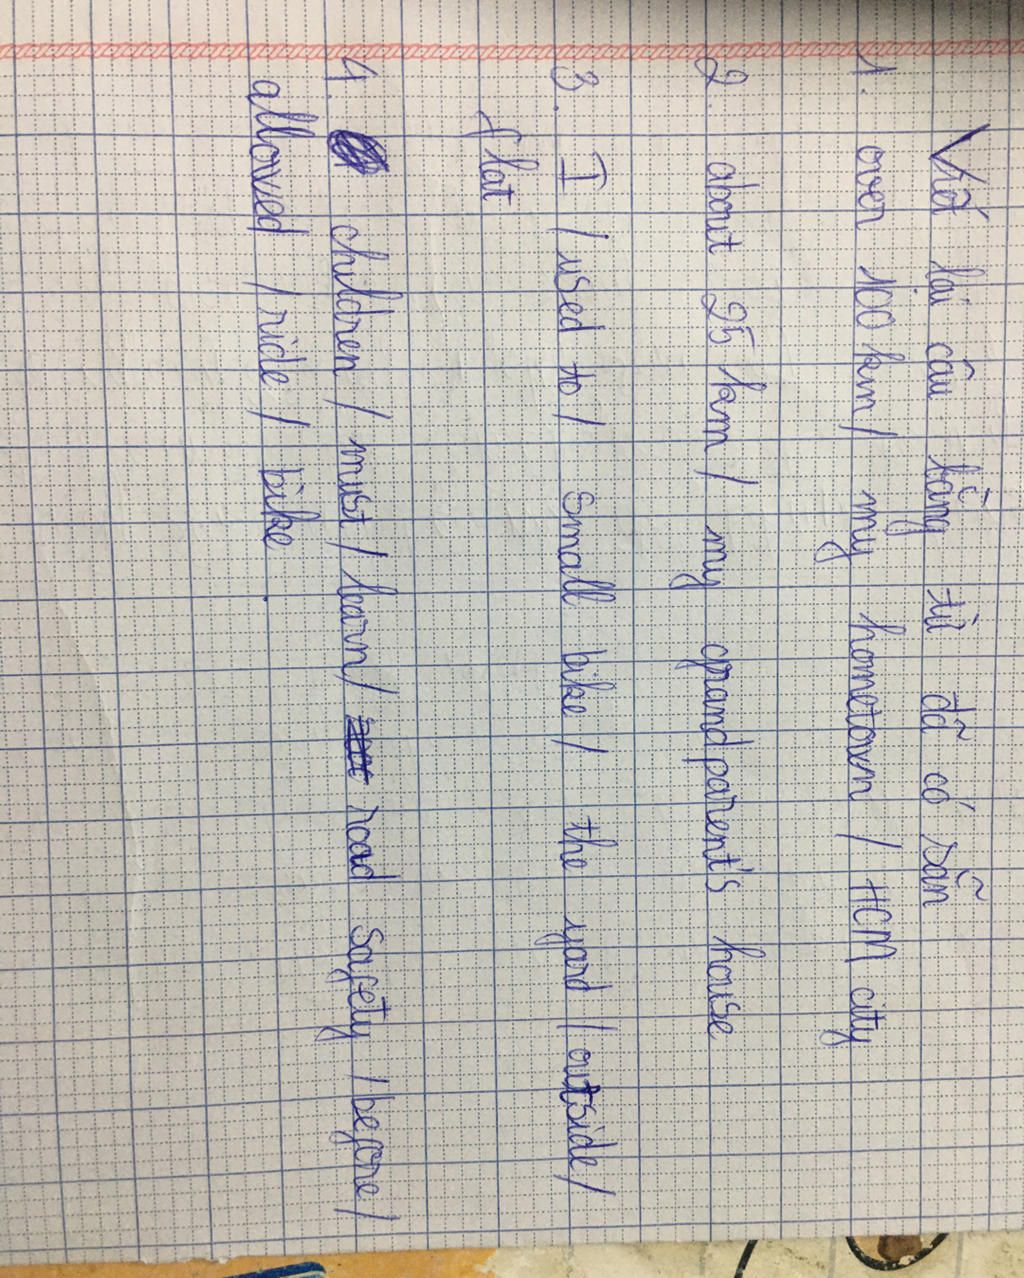 Viết lại câu bằng từ đã có sẵn
1. over 100 km / my hometown / HCM city
2. about 25 km / my grandparent's house
3. I / used to / small bike / the yard / outside /
flat
4. children / must / learn / road safety / before /
allowed / ride / bike